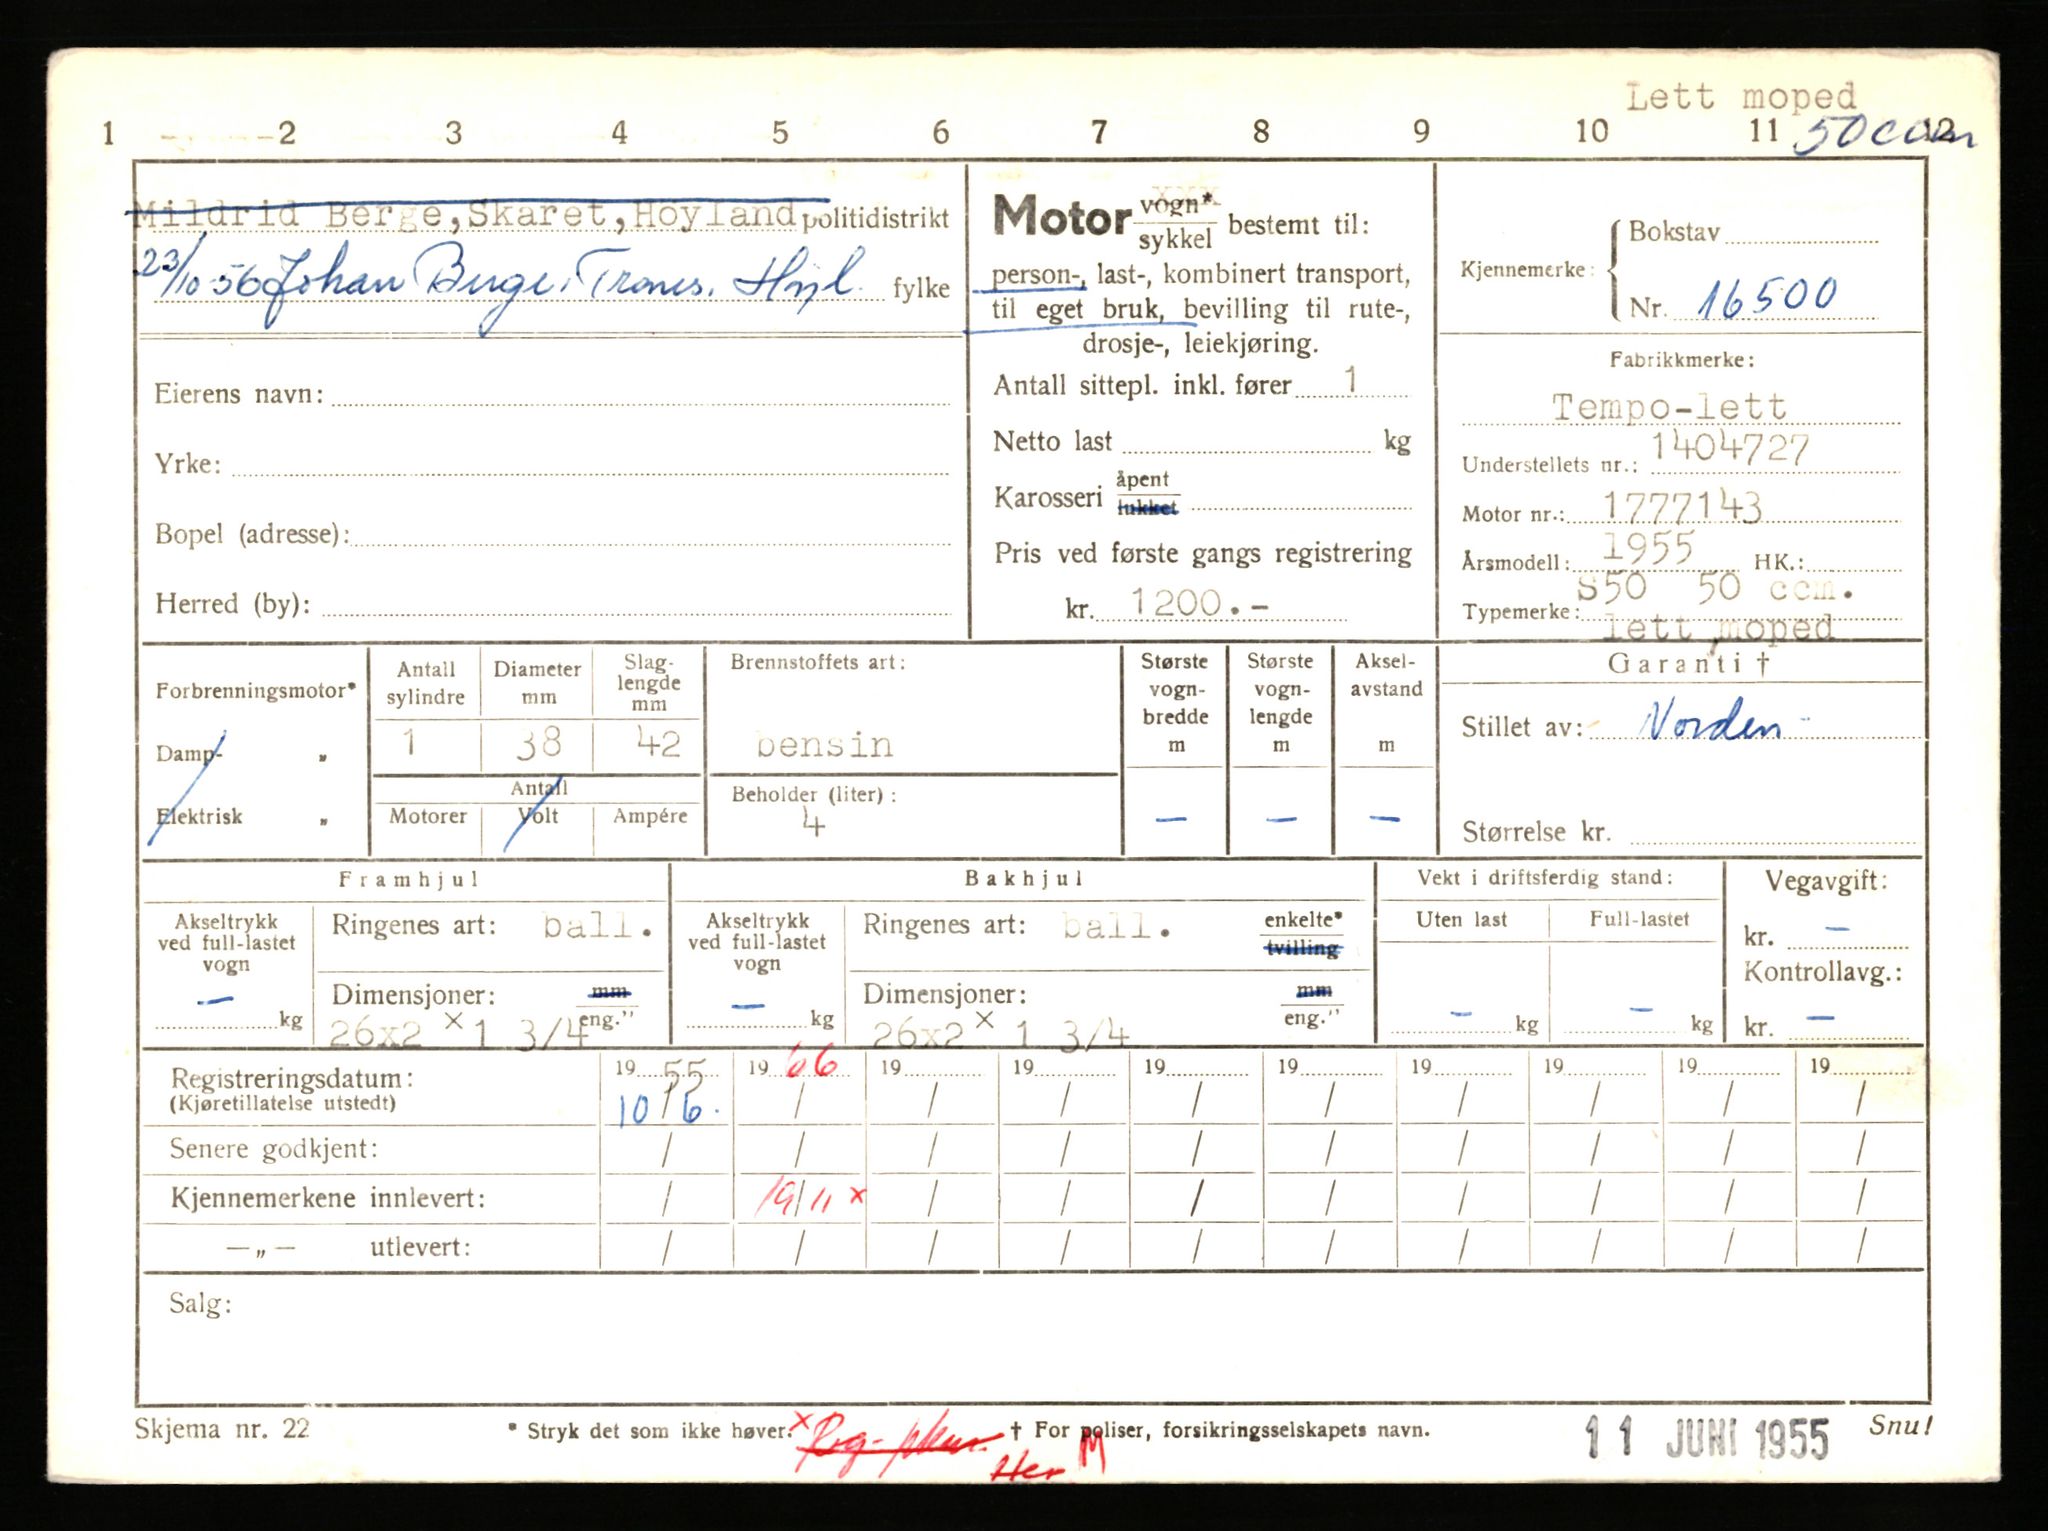 Lett moped
1 2 3 4 5 6 7 8 9 10 11 12
50 ccm
Mildrid Berge, Skaret, Høyland politidistrikt
23/10-56 Johan Berge, Trones, Høyl. fylke
Eierens navn:
Yrke:
Bopel (adresse):
Herred (by):
Motor vogn* / sykkel bestemt til:
person-, last-, kombinert transport,
til eget bruk, bevilling til rute-,
drosje-, leiekjøring.
Antall sittepl. inkl. fører 1
Netto last kg
Karosseri åpent / lukket
Pris ved første gangs registrering
kr. 1200.-
Kjennemerke: Bokstav
Nr. 16500
Fabrikkmerke:
Tempo-lett
Understellets nr.: 1404727
Motor nr.: 1777143
Årsmodell: 1955 HK.:
S50 50 ccm.
Typemerke: lett moped
Forbrenningsmotor*
Damp- „
Elektrisk „
Antall sylindre
1
Diameter mm
38
Slaglengde mm
42
Antall
Motorer Volt Ampére
Brennstoffets art:
bensin
Beholder (liter):
4
Største vognbredde m
–
Største vognlengde m
–
Akselavstand m
–
Garanti †
Stillet av: Norden
Størrelse kr.
Framhjul
Akseltrykk ved full-lastet vogn
– kg
Ringenes art: ball.
Dimensjoner: mm / eng."
26x2 x 1 3/4
Bakhjul
Akseltrykk ved full-lastet vogn
– kg
Ringenes art: ball. enkelte* / tvilling
Dimensjoner: mm / eng."
26x2 x 1 3/4
Vekt i driftsferdig stand:
Uten last Full-lastet
– kg – kg
Vegavgift:
kr. –
Kontrollavg.:
kr. –
Registreringsdatum: 19 55 19 66 19 19 19 19 19 19 19 19
(Kjøretillatelse utstedt) 10/6. / / / / / / / / /
Senere godkjent: / / / / / / / / / /
Kjennemerkene innlevert: / 19/11 x / / / / / / / /
— „ — utlevert: / / / / / / / / / /
Salg:
Skjema nr. 22
* Stryk det som ikke høver.
x
† For poliser, forsikringsselskapets navn.
11 JUNI 1955
Snu!
M